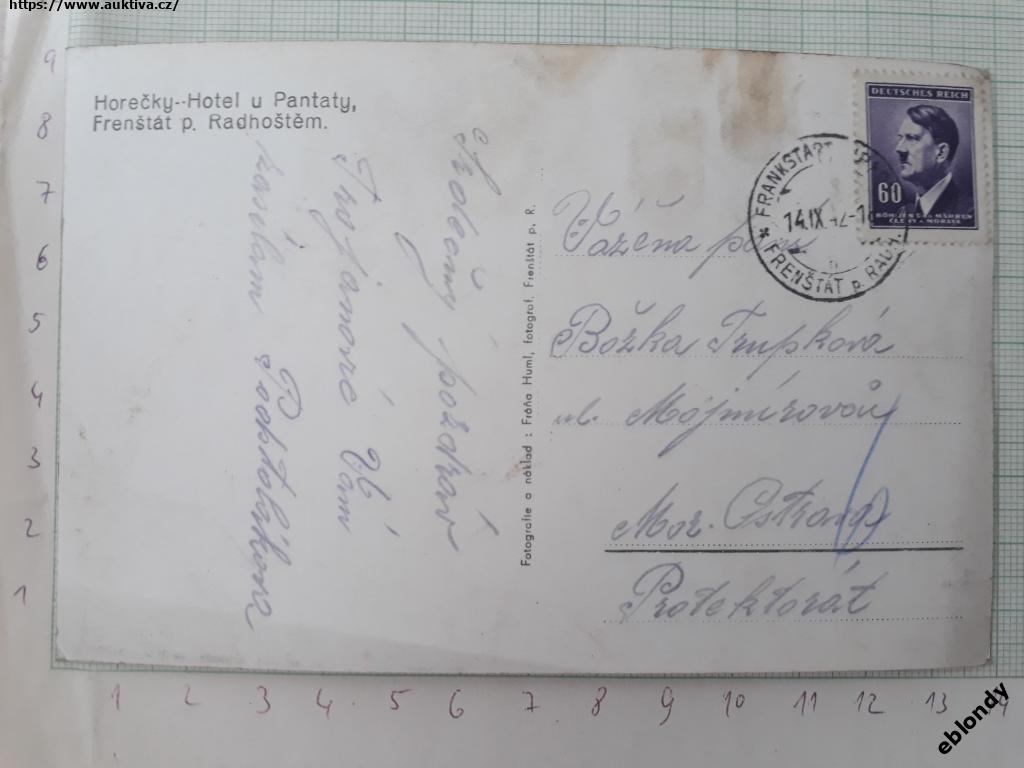 https://www.auktiva.cz/
Horečky--Hotel u Pantaty,
Frenštát p. Radhoštěm.
Srdečný pozdrav
Trojanové Vám
zasílám
Fotografie a náklad : Fráňa Huml, fotograf. Frenštát p. R.
DEUTSCHES REICH
60
BÖHMEN UND MÄHREN
ČECHY A MORAVA
FRANKSTADT
14.IX.42-1
* FRENŠTÁT p. RADH.
Vážená paní
Božka Trupková
ul. Mojmírová
Mor. Ostrava
Protektorát
9
8
7
6
5
4
3
2
1
1 2 3 4 5 6 7 8 9 10 11 12 13 14
eblondy